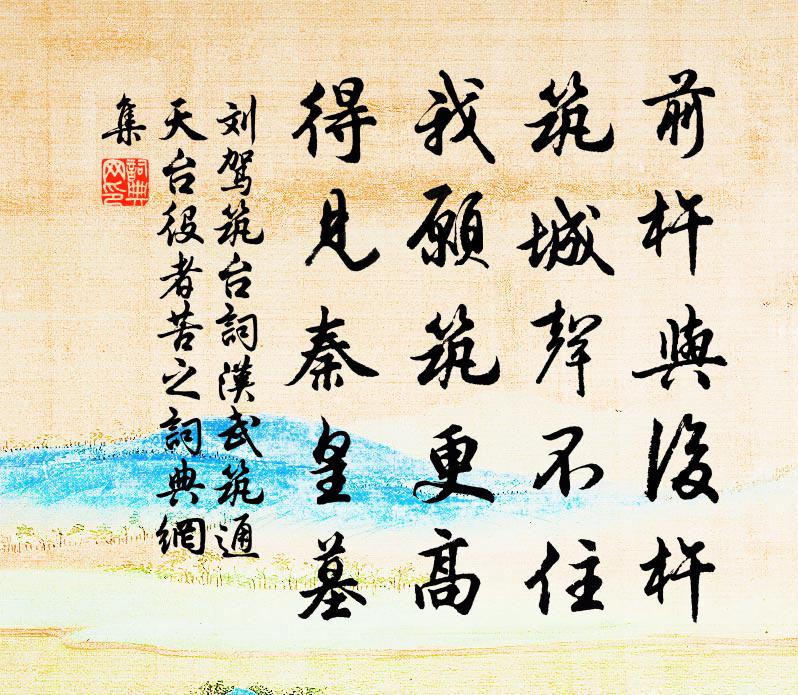 前杵與後杵
筑城聲不住
我願筑更高
得見秦皇墓
刘駕筑台詞漢武筑通
天台役者苦之詞典網
集
詞典網印